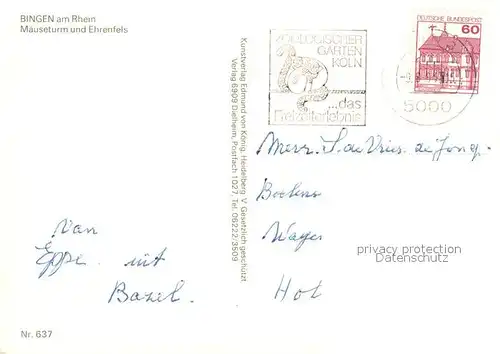 BINGEN am Rhein
Mäuseturm und Ehrenfels
ZOOLOGISCHER
GARTEN
KÖLN
...das
Freizeiterlebnis
DEUTSCHE BUNDESPOST
60
5000
Kunstverlag Edmund von König, Heidelberg. V Gesetzlich geschützt
Verlag 6909 Dielheim, Postfach 1027, Tel. 06222/3509
S. de Vries. de Jong.
van
Eppe uit
Bazel.
privacy protection
Datenschutz
Nr. 637